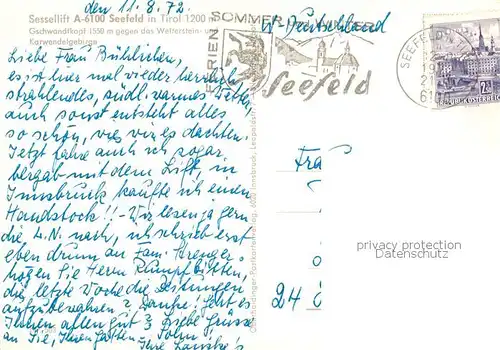 den 11.8.72
Sessellift A-6100 Seefeld in Tirol 1200 m
Gschwandtkopf 1550 m gegen das Wetterstein- und
Karwendelgebirge
FERIEN SOMMER WINTER
Seefeld
W Deutschland
SEEFELD
REPUBLIK ÖSTERREICH
Liebe Frau
es ist hier mal wieder herrlich
strahlendes, südl. warmes Wetter,
auch sonst entsteht alles
so schön, wie wir es dachten.
Jetzt fahre auch ich sogar
bergab mit dem Lift, in
Innsbruck kaufte ich einen
Handstock!! - Wir lesen ja gern
die L.N. nach, ich schrieb erst
eben drum an Fam.
mögen Sie Herrn Rumpf bitten,
die letzte Woche die Zeitungen
aufzubewahren? Danke! Geht es
Ihnen allen gut? Liebe Grüsse
an Sie, Ihren Gatten,
Ihre
Fra
24
privacy protection
Datenschutz